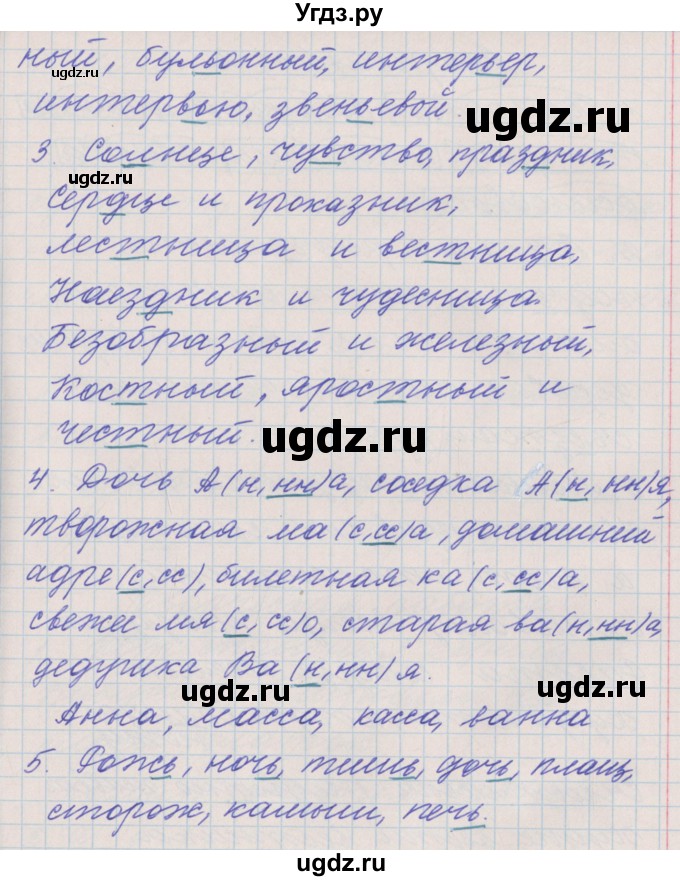 Угдз.ру
ный, бульонный, интерьер,
ugdz.ru
интервью, звеньевой.
ugdz.ru
3. Солнце, чувство, праздник,
ugdz.ru
Сердце и проказник,
лестница и вестница,
Наездник и чудесница.
Безобразный и железный,
Костный, яростный и
честный.
ugdz.ru
4. Дочь А(н, нн)а, соседка А(н, нн)я,
творожная ма(с, сс)а, домашний
адре(с, сс), билетная ка(с, сс)а,
свежее мя(с, сс)о, старая ва(н, нн)а,
дедушка Ва(н, нн)я.
ugdz.ru
ugdz.ru
Анна, масса, касса, ванна
5. Рожь, ночь, тишь, дочь, плащ,
сторож, камыш, печь.
ugdz.ru